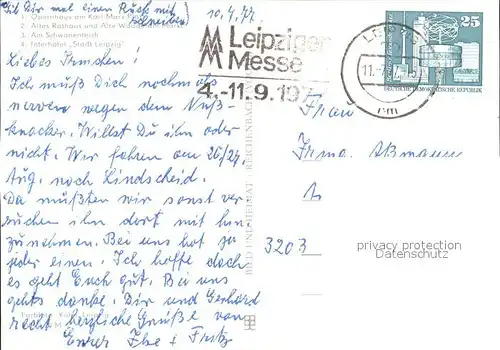 Gib Dir mal einen Ruck mit
schreiben!
10.4.77
1. Opernhaus am Karl-Marx-Platz
2. Altes Rathaus und Alte Waage
3. Am Schwanenteich
4. Interhotel „Stadt Leipzig"
Liebes Irmchen!
Ich muß Dich nochmals
nerven wegen dem Nuß-
knacker. Willst Du ihn oder
nicht. Wir fahren am 26/27.
Aug. nach Lindscheid.
Da müßten wir sonst ver
suchen ihn dort mit hin
zunehmen. Bei uns hat ja
jeder einen. Ich hoffe doch
es geht Euch gut. Bei uns
gehts danke. Dir und Gerhard
recht herzliche Grüße von
Eurer Ilse + Fritz
BILD UND HEIMAT REICHENBACH
MM Leipziger
Messe
4.-11.9.19
25
DEUTSCHE DEMOKRATISCHE REPUBLIK
Frau
Irma Aßmann
3203
privacy protection
Datenschutz